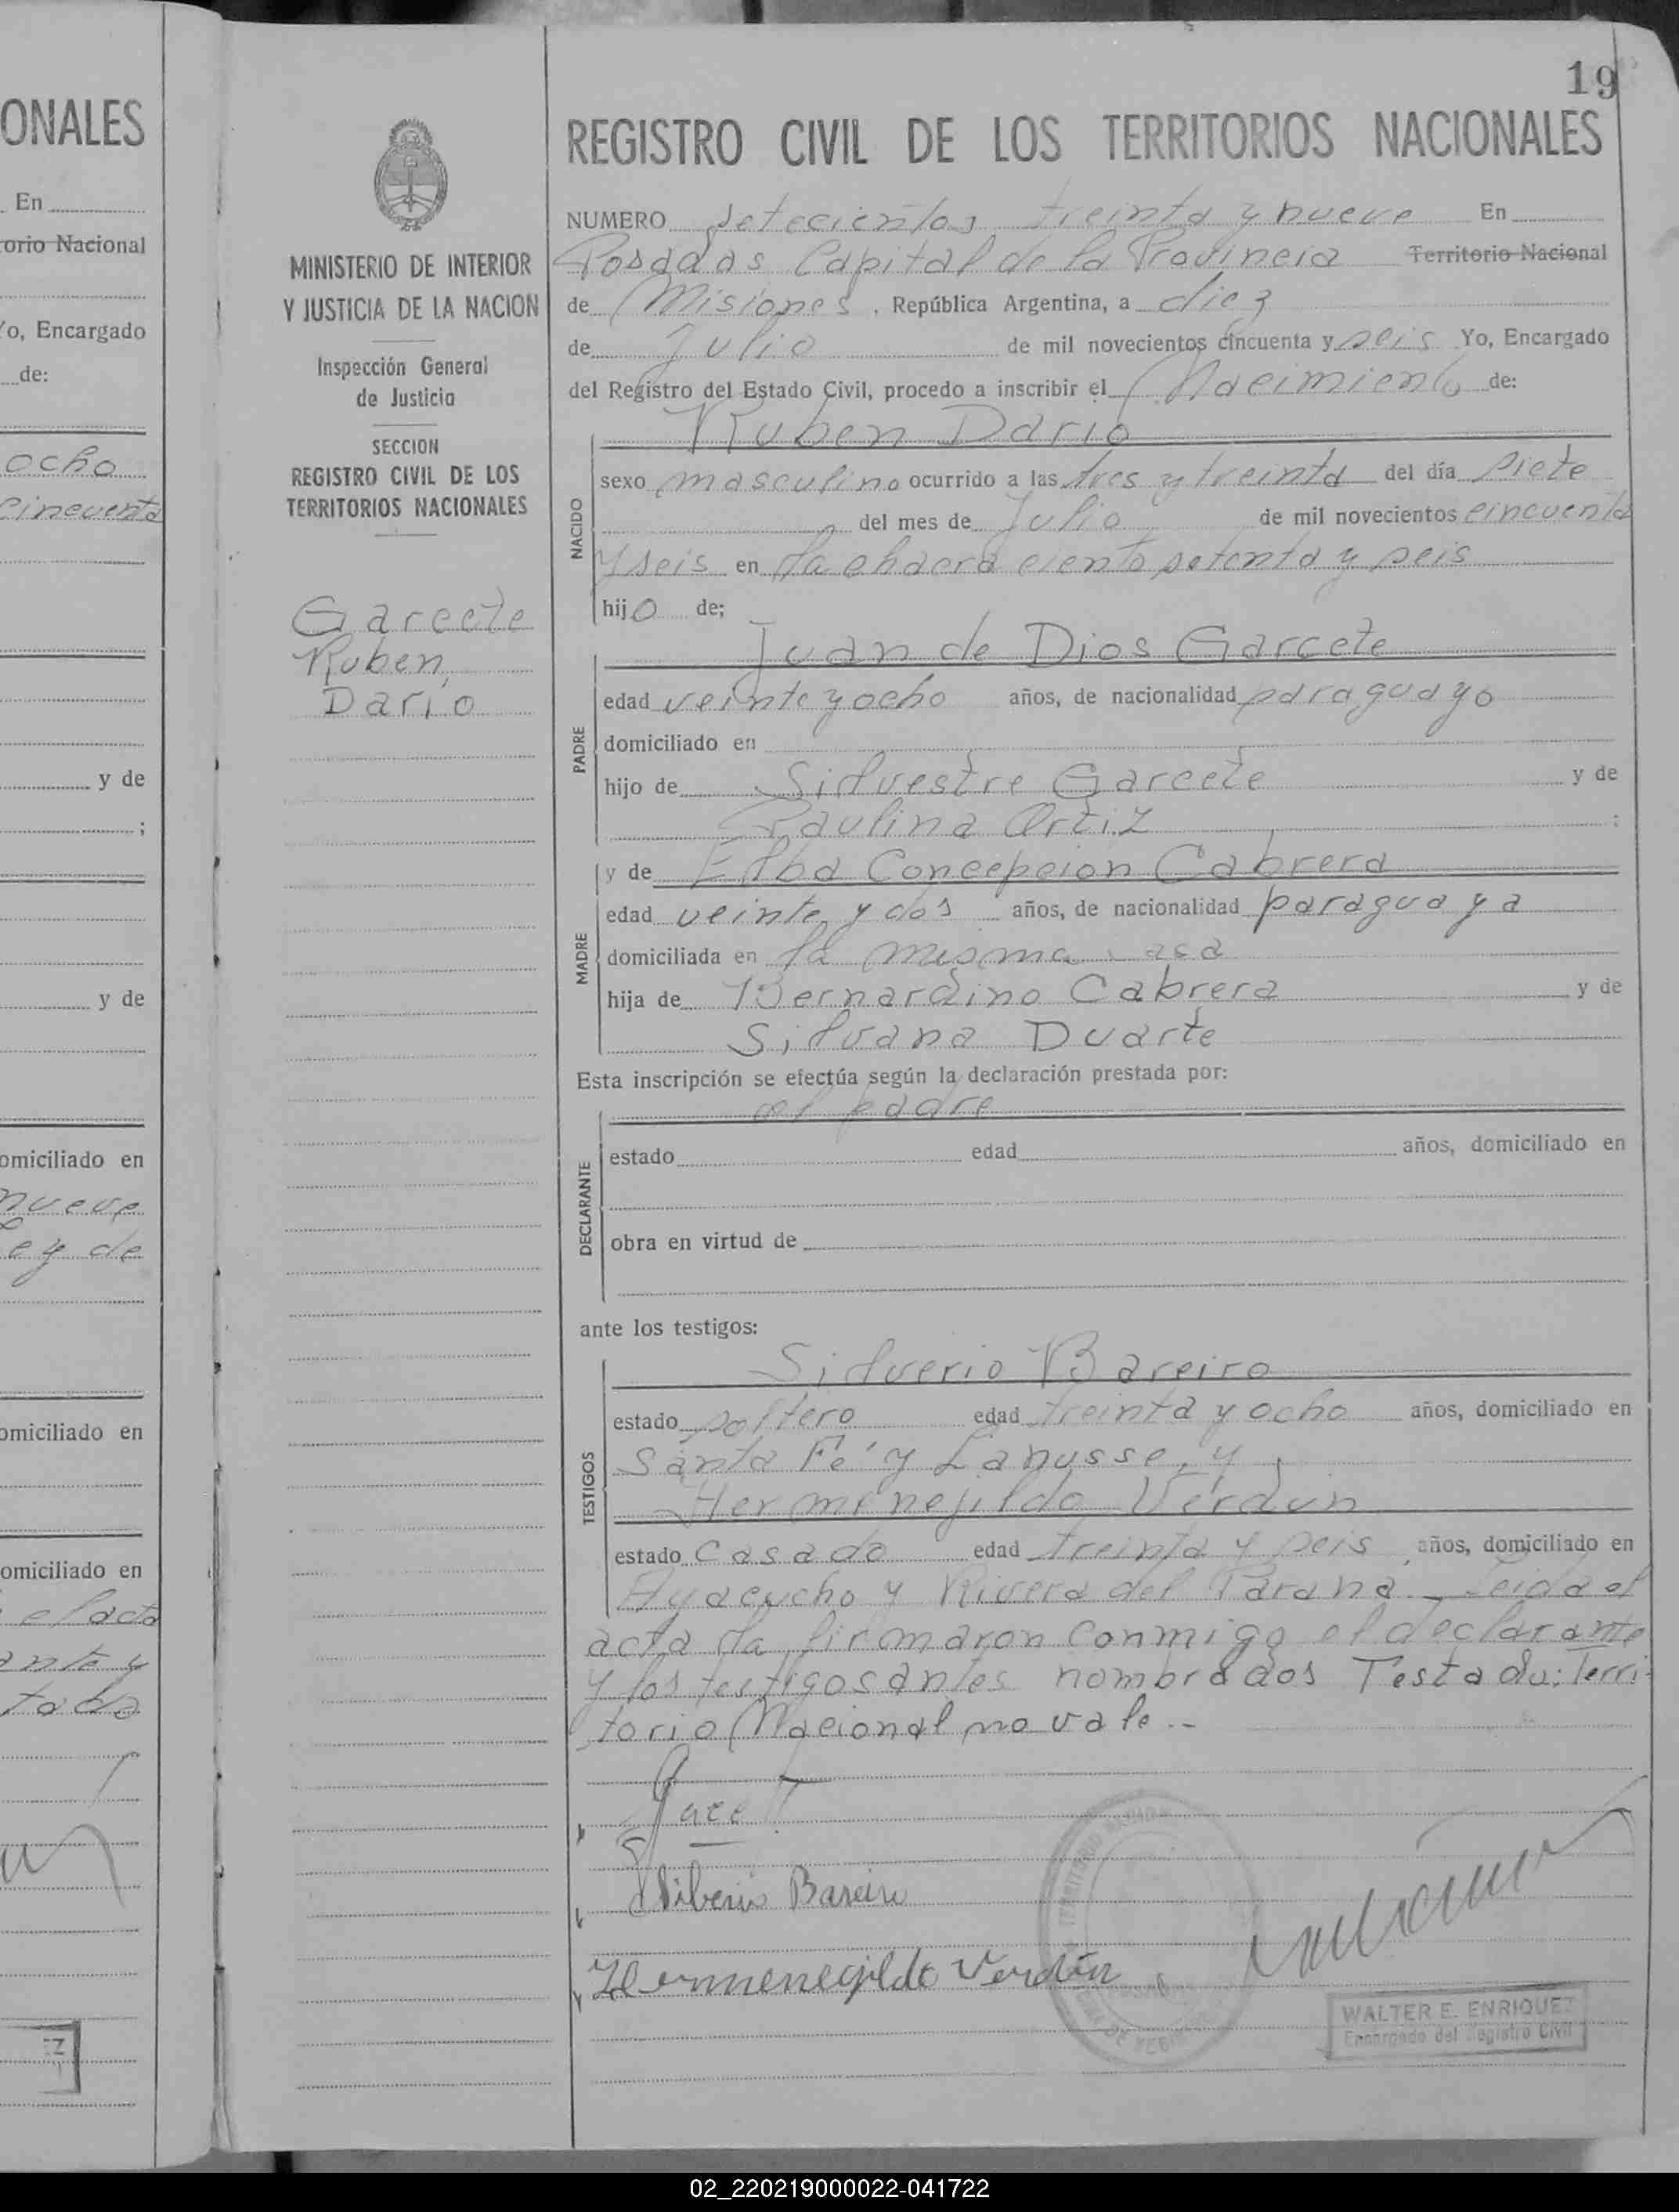 ONALES
En
orio Nacional
Yo, Encargado
de:
ocho
cincuenta
y de
;
y de
omiciliado en
nueve
e y de
omiciliado en
omiciliado en
el acta
ante y
19
MINISTERIO DE INTERIOR
Y JUSTICIA DE LA NACION
Inspección General
de Justicia
SECCION
REGISTRO CIVIL DE LOS
TERRITORIOS NACIONALES
Garcete
Ruben
Dario
REGISTRO CIVIL DE LOS TERRITORIOS NACIONALES
NUMERO setecientos treinta y nueve En
Posadas Capital de la Provincia Territorio Nacional
de Misiones, República Argentina, a diez
de Julio de mil novecientos cincuenta y seis Yo, Encargado
del Registro del Estado Civil, procedo a inscribir el Nacimiento de:
Ruben Dario
NACIDO
sexo masculino ocurrido a las tres y treinta del día siete
del mes de Julio de mil novecientos cincuenta
y seis en la chacra ciento setenta y seis
hijo de;
Juan de Dios Garcete
PADRE
edad veinte y ocho años, de nacionalidad paraguayo
domiciliado en
hijo de Silvestre Garcete y de
Paulina Ortiz :
y de Elba Concepcion Cabrera
MADRE
edad veinte y dos años, de nacionalidad paraguaya
domiciliada en la misma casa
hija de Bernardino Cabrera y de
Silvana Duarte
Esta inscripción se efectúa según la declaración prestada por:
el padre
DECLARANTE
estado edad años, domiciliado en
obra en virtud de
ante los testigos:
Silverio Bareiro
TESTIGOS
estado soltero edad treinta y ocho años, domiciliado en
Santa Fé y Lanusse, y
Hermenejildo Verdun
estado Casado edad treinta y seis, años, domiciliado en
Ayacucho y Rivera del Parana. Leida el
acta la firmaron conmigo el declarante
y los testigos antes nombrados Testado: Terri-
torio Nacional no vale.-
Silberio Bareiro
Hermenegildo Verdún
WALTER E. ENRIQUEZ
Encargado del Registro Civil
02_220219000022-041722